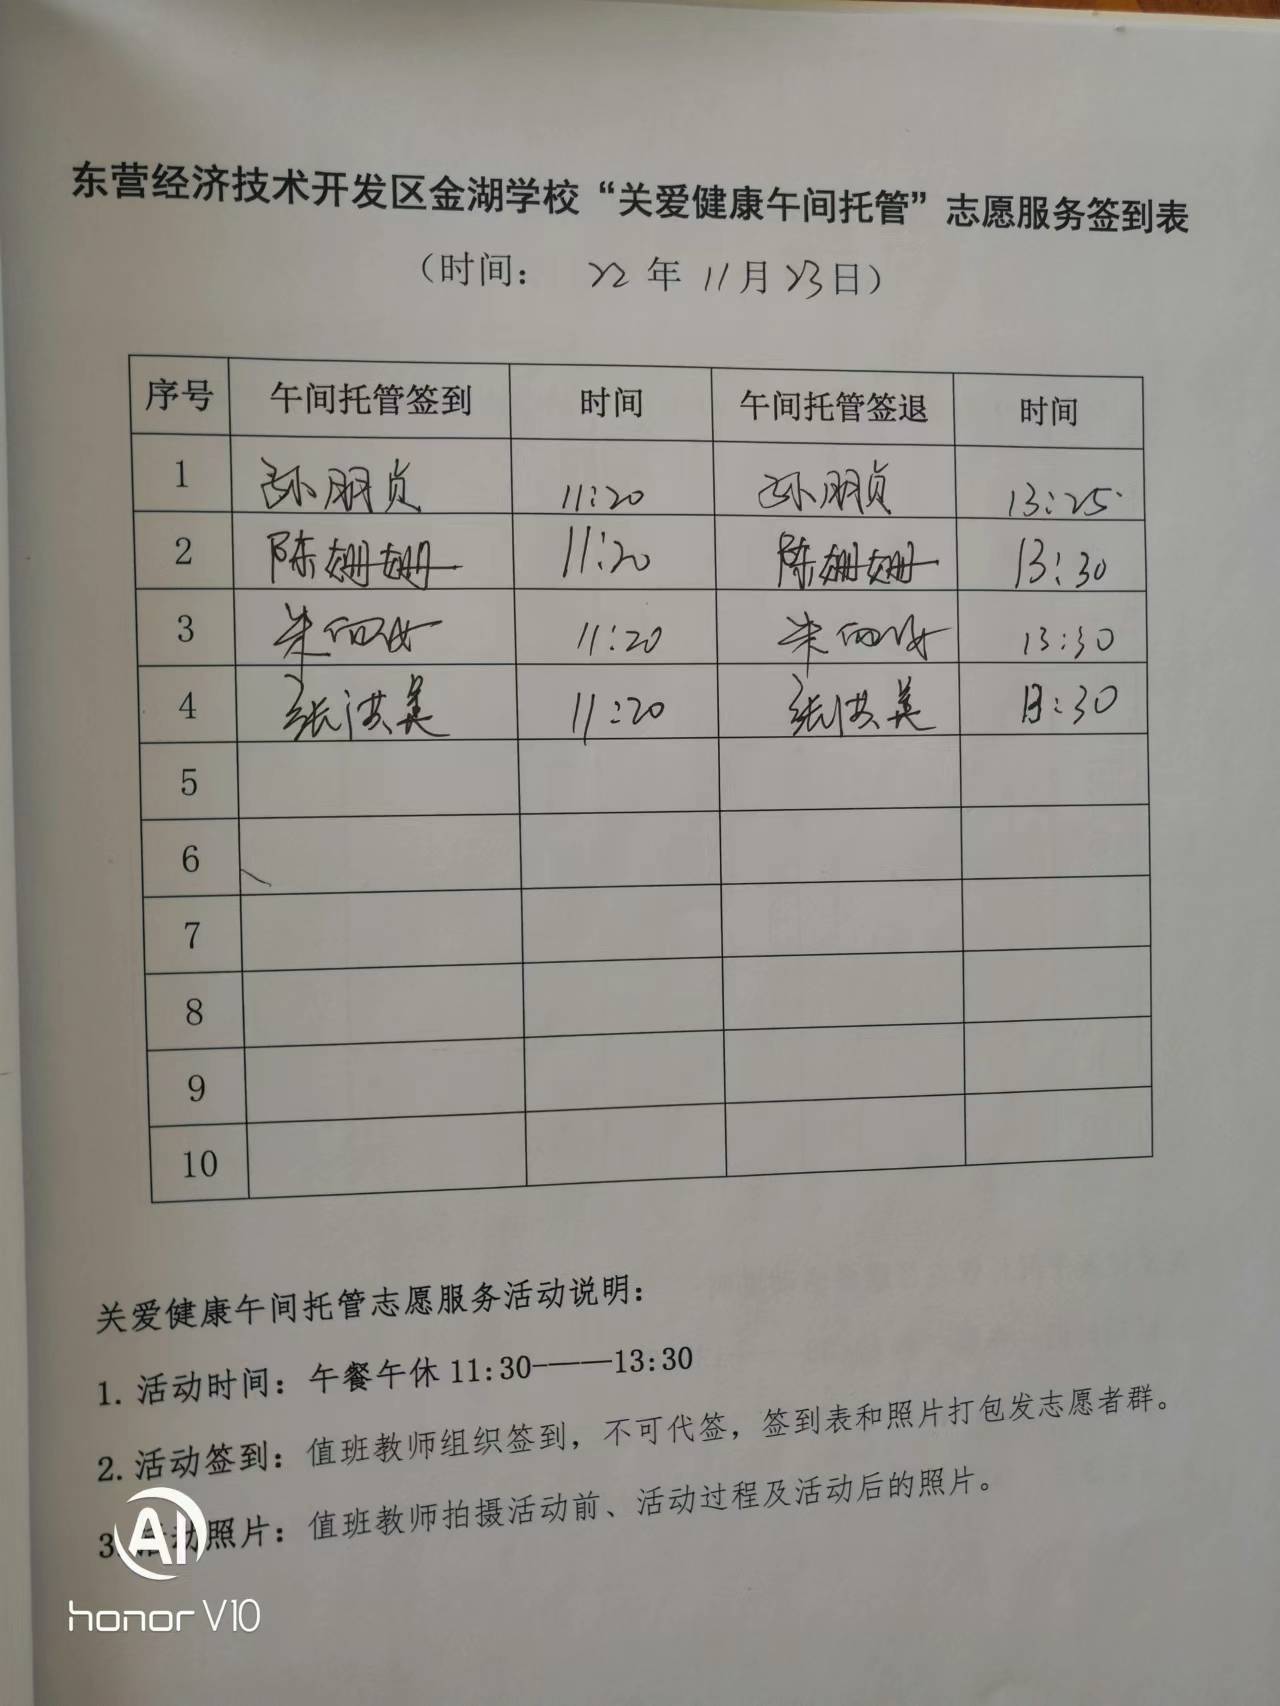 东营经济技术开发区金湖学校“关爱健康午间托管”志愿服务签到表
（时间： 22 年 11 月 23 日）
序号 午间托管签到 时间 午间托管签退 时间
1 孙朋贞 11:20 孙朋贞 13:25
2 陈姗姗 11:20 陈姗姗 13:30
3 11:20 13:30
4 张洪美 11:20 张洪美 13:30
5
6
7
8
9
10
关爱健康午间托管志愿服务活动说明：
1. 活动时间：午餐午休 11:30-——13:30
2. 活动签到：值班教师组织签到，不可代签，签到表和照片打包发志愿者群。
3. 活动照片：值班教师拍摄活动前、活动过程及活动后的照片。
AI
honor V10